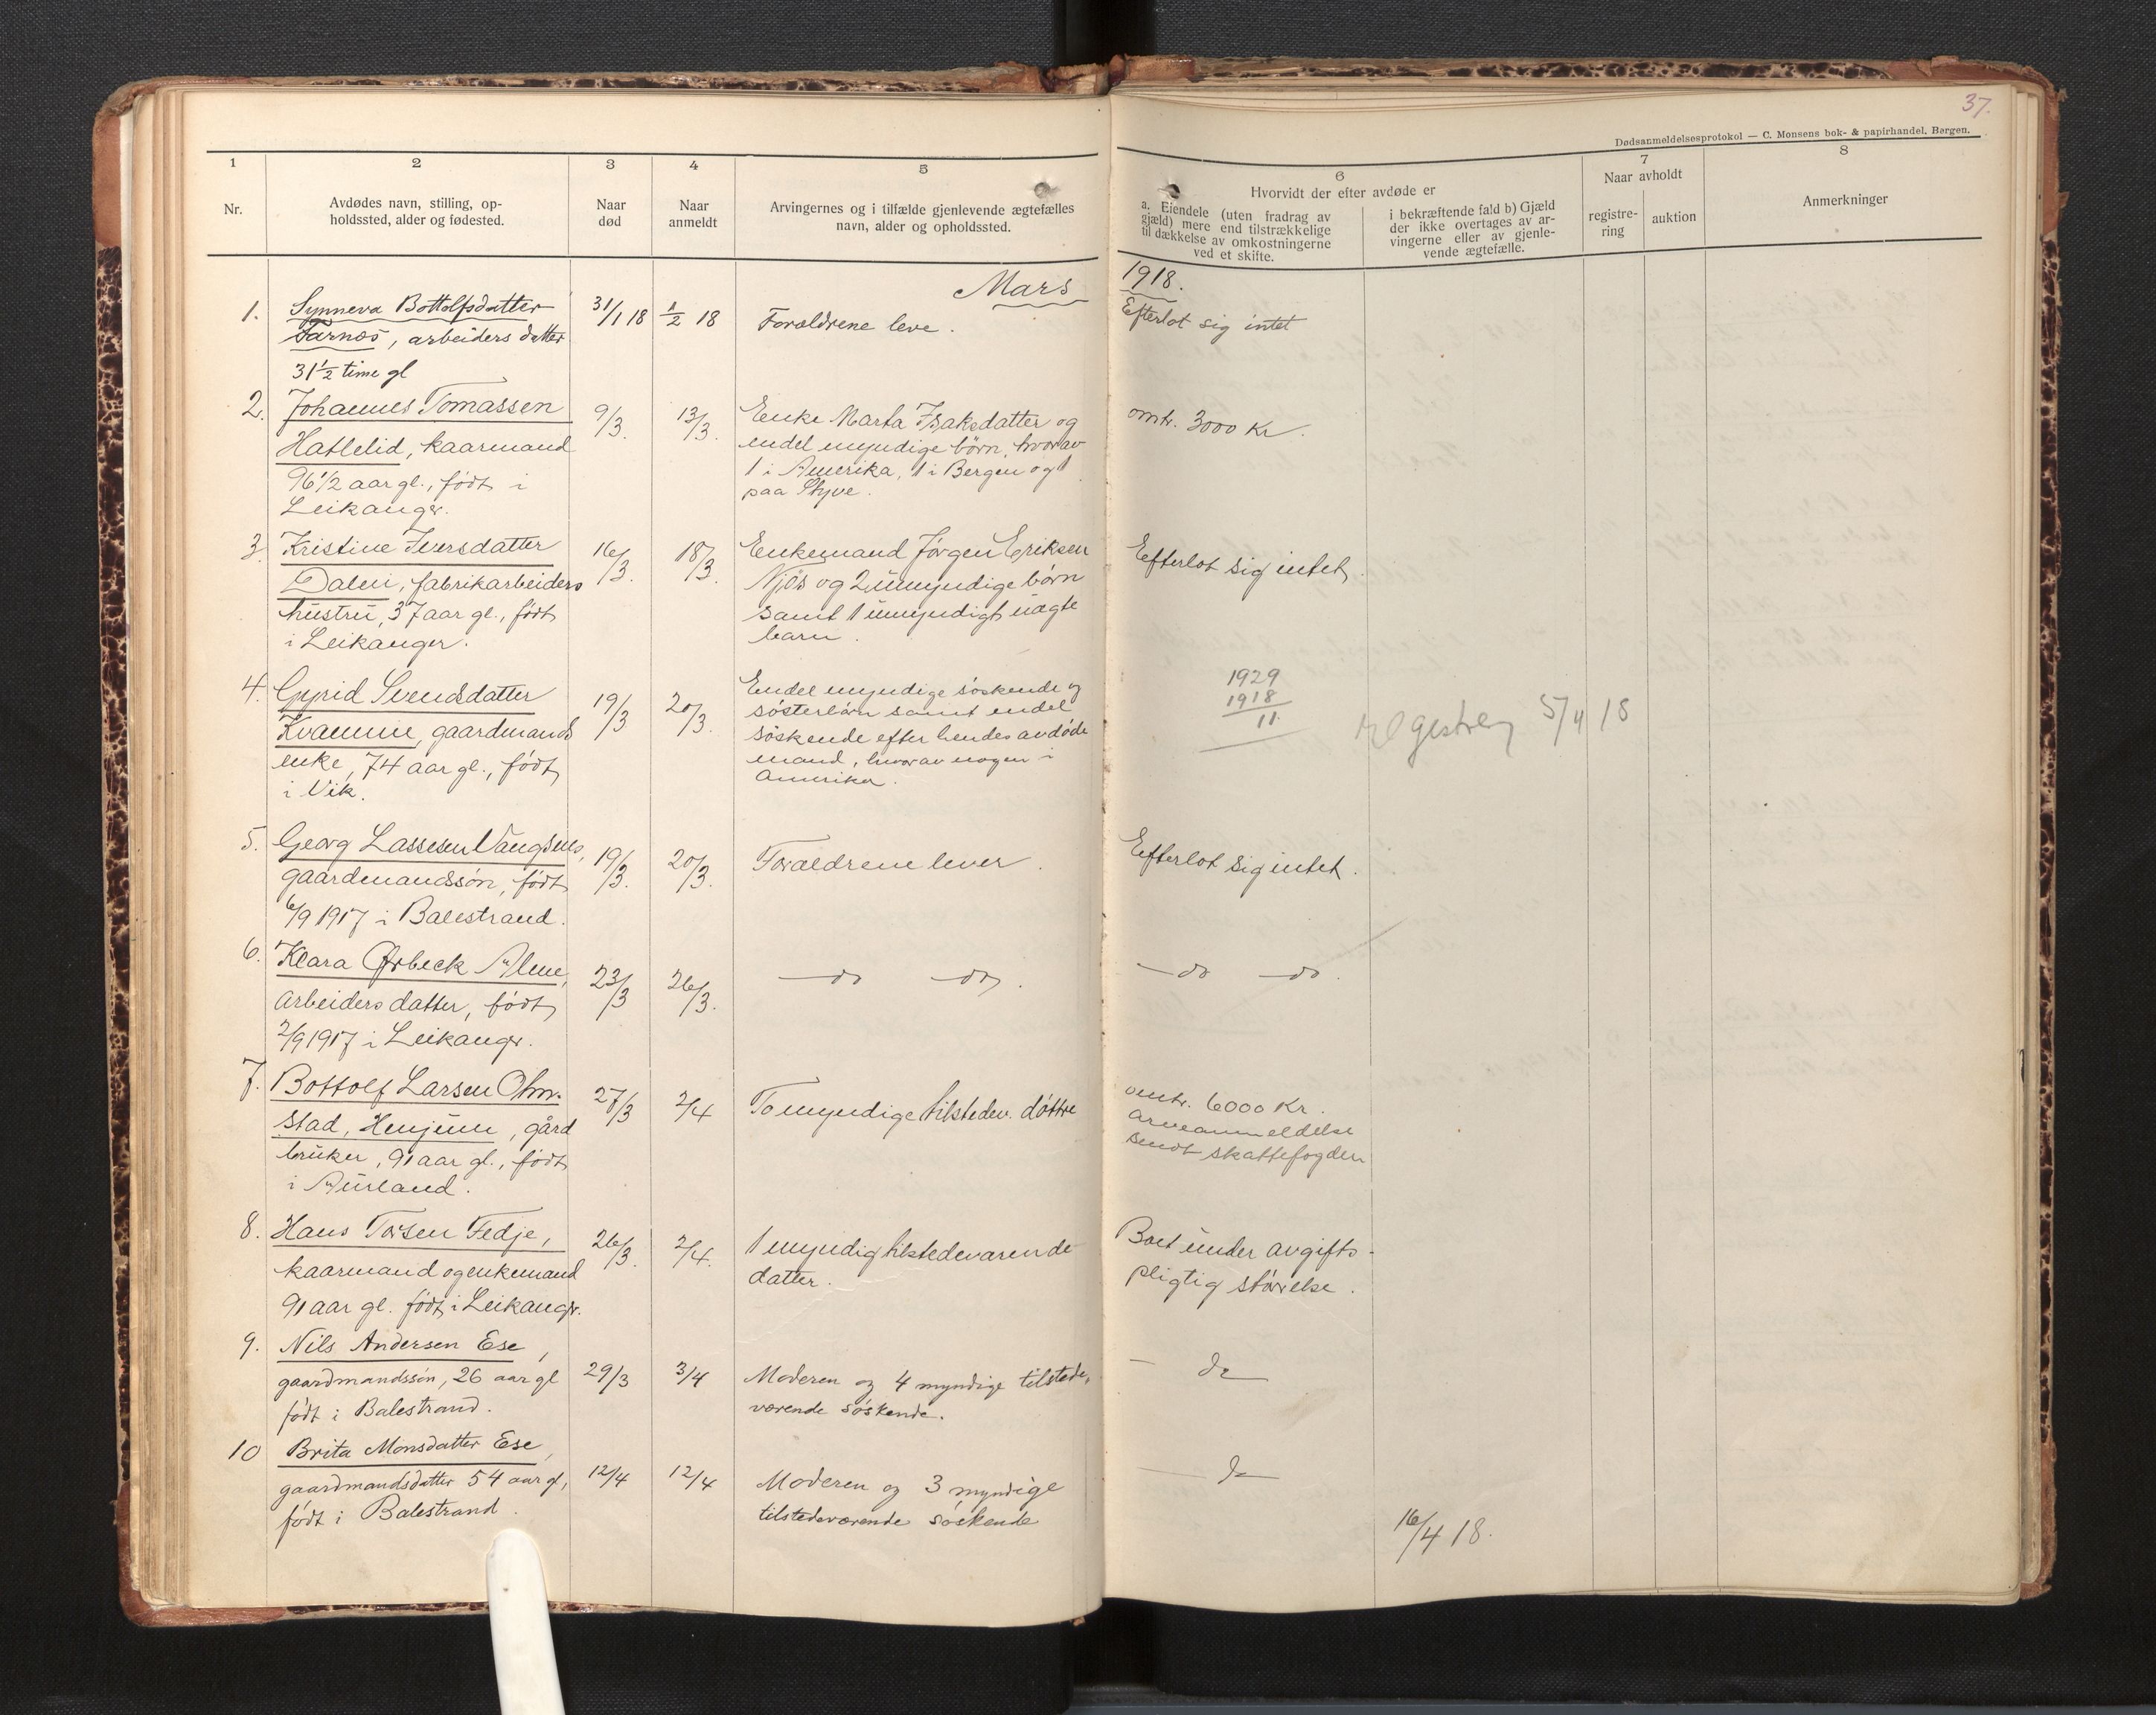 37.
Dødsanmeldelsesprotokol — C. Monsens bok- & papirhandel, Bergen.
1
2
3
4
5
6
7
8
Nr.
Avdødes navn, stilling, op-
holdssted, alder og fødested.
Naar
død
Naar
anmeldt
Arvingernes og i tilfælde gjenlevende ægtefælles
navn, alder og opholdssted.
Hvorvidt der efter avdøde er
a. Eiendele (uten fradrag av
gjæld) mere end tilstrækkelige
til dækkelse av omkostningerne
ved et skifte.
i bekræftende fald b) Gjæld
der ikke overtages av ar-
vingerne eller av gjenle-
vende ægtefælle.
Naar avholdt
registre-
ring
auktion
Anmerkninger
Mars 1918.
1. Synneva Bottolfsdatter 31/1 18 1/2 18 Forældrene leve. Efterlot sig intet
Farnes, arbeiders datter
31 1/2 time gl
2. Johannes Tomassen 9/3. 13/3. Enke Marta Isaksdatter og omtr. 3000 Kr.
Hatlelid, kaarmand endel myndige børn, hvorav
96 1/2 aar gl., født i 1 i Amerika, 1 i Bergen og 1
Leikanger. paa Styve.
3. Kristine Iversdatter 16/3. 18/3. Enkemand Jørgen Eriksen Efterlot sig intet.
Dalen, fabrikarbeiders Njøs og 2 umyndige børn
hustru, 37 aar gl., født samt 1 umyndigt uægte
i Leikanger. barn.
4. Gyrid Svendsdatter 19/3 20/3. Endel myndige søskende og 1929
Kvamme, gaardmands søsterbørn samt endel 1918
enke, 74 aar gl., født søskende efter hendes avdøde 11. 5/4 18
i Vik. mand, hvorav nogen i
Amerika.
5. Georg Lassesen Vangsnes, 19/3. 20/3. Forældrene lever. Efterlot sig intet.
gaardmandssøn, født
6/9 1917 i Balestrand.
6. Klara Ørbeck Alme, 23/3 26/3. — do — do. — do — do.
arbeiders datter, født
2/9 1917 i Leikanger.
7. Bottolf Larsen Ohn- 27/3 2/4 To myndige tilstedev. døttre omtr. 6000 Kr.
stad, Henjum, gård arveanmeldelse
bruker, 91 aar gl., født sendt skattefogden
i Aurland.
8. Hans Torsen Fedje, 26/3. 2/4. 1 myndig tilstedeværende Boet under avgifts-
kaarmand og enkemand datter. pligtig størelse.
91 aar gl. født i Leikanger.
9. Nils Andersen Ese, 29/3 3/4 Moderen og 4 myndige tilstede- — do —
gaardmandssøn, 26 aar gl værende søskende.
født i Balestrand.
10 Brita Monsdatter Ese, 12/4 12/4 Moderen og 3 myndige — do —
gaardmandsdatter 54 aar gl, tilstedeværende søskende
født i Balestrand.
16/4 18.